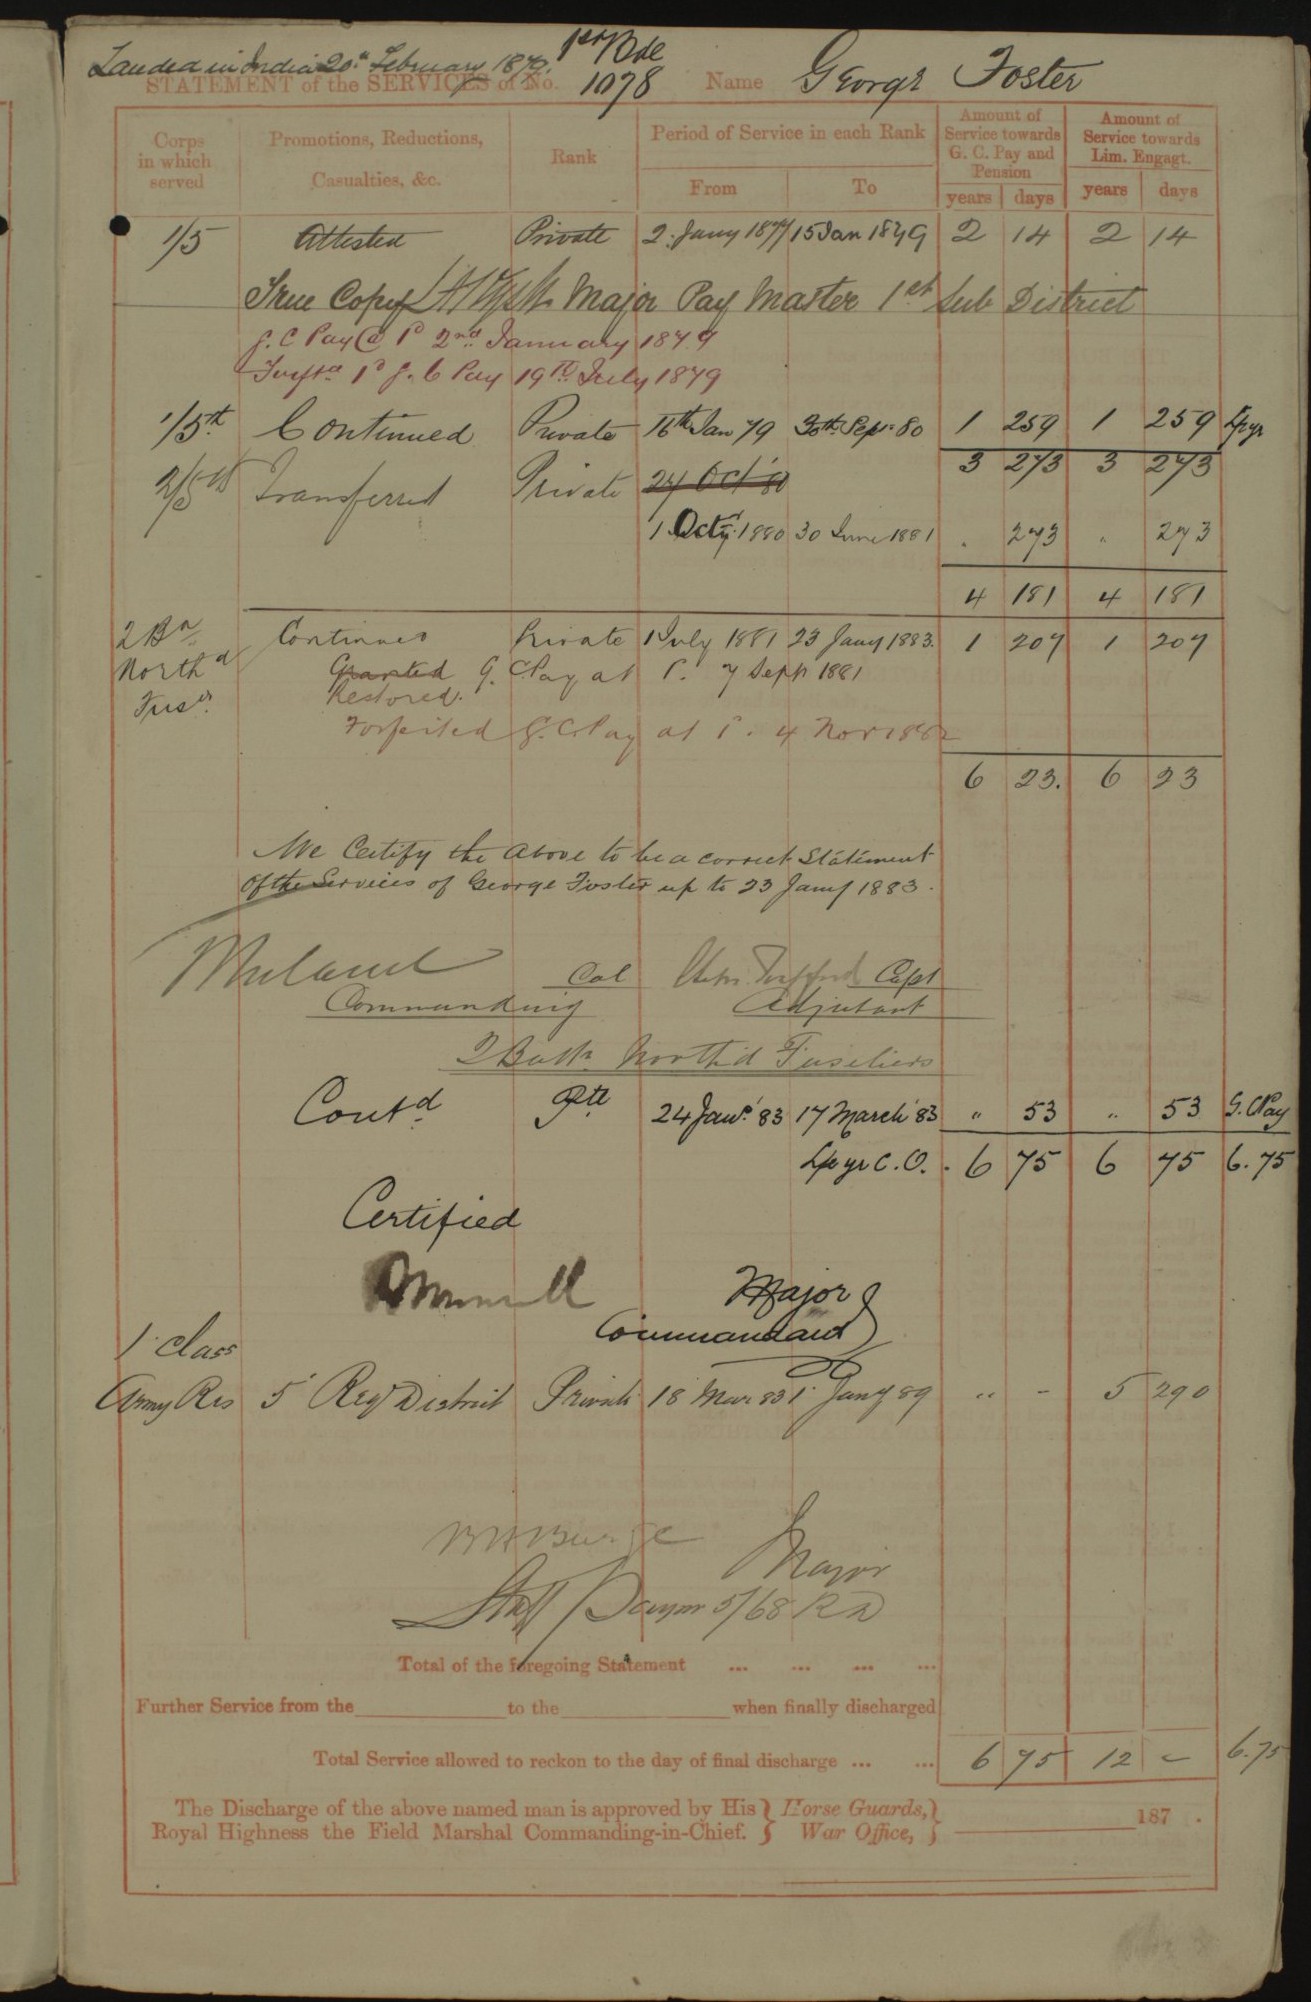 Landed in India 20th February 1879.
1st Bde
STATEMENT of the SERVICES of No. 1078 Name George Foster
Corps in which served
Promotions, Reductions, Casualties, &c.
Rank
Period of Service in each Rank
From To
Amount of Service towards G. C. Pay and Pension
years days
Amount of Service towards Lim. Engagt.
years days
1/5 Attested Private 2 Jany 1877 15 Jan 1879 2 14 2 14
True Copy Major Pay Master 1st Sub District
G. C Pay @ 1d 2nd January 1879
1d G. C Pay 19th July 1879
1/5th Continued Private 16th Jan 79 30th Sep. 80 1 259 1 259
3 273 3 273
2/5th Transferred Private 24 Oct 80
1 Oct 1880 30 June 1881 " 273 " 273
4 181 4 181
2 Bn North'd Fusrs Continues Private 1 July 1881 23 Jany 1883. 1 207 1 207
Granted G. C. Pay at 1d. 7 Sept 1881
Restored.
Forfeited G. C. Pay at 1d. 4 Nov 1882
6 23. 6 23
We Certify the above to be a correct Statement
of the Services of George Foster up to 23 Jany 1883.
Col Capt
Commanding Adjutant
2 Batt. North'd Fusiliers
Contd Pte 24 Jany. '83 17 March '83 " 53 " 53 G. C Pay
C. O. 6 75 6 75 6.75
Certified
Major
Commandant
1 Class
Army Res 5 Regt District Private 18 Mar 83 1 Jany 89 " - 5 290
Major
Staff Paymr 5/68 R D
Total of the foregoing Statement ... ... ... ...
Further Service from the to the when finally discharged
Total Service allowed to reckon to the day of final discharge ... ... 6 75 12 - 6.75
The Discharge of the above named man is approved by His } Horse Guards, }
Royal Highness the Field Marshal Commanding-in-Chief. } War Office, } 187 .